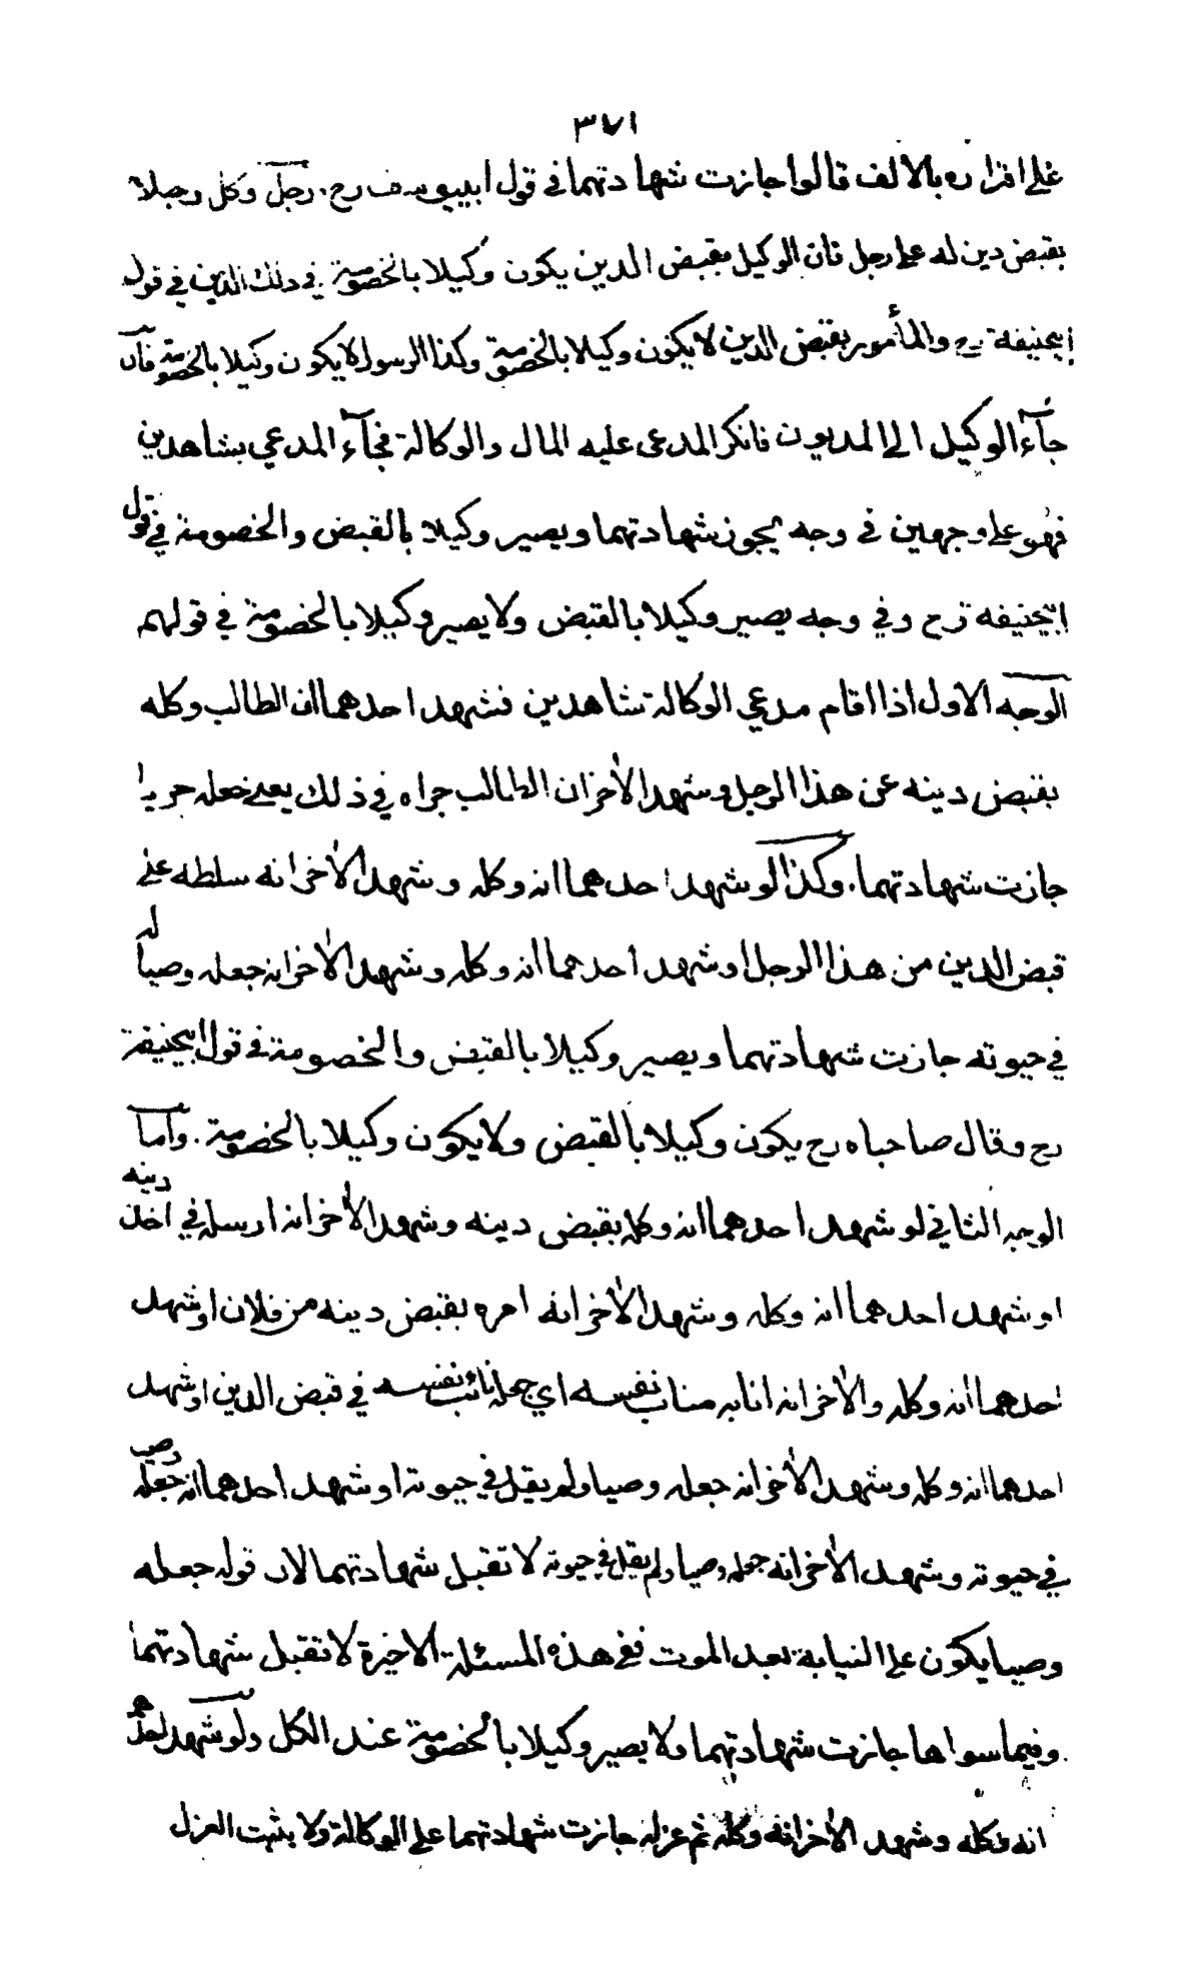 ٣٧١
على اقراره بالالف قالوا جازت شهادتهما في قول ابييوسف رح. رجل وكل رجلا
بقبض دين له على رجل فان الوكيل بقبض الدين يكون وكيلا بالخصومة في ذلك الدين في قول
ابيحنيفة رح والمأمور بقبض الدين لا يكون وكيلا بالخصومة وكذا الرسول لا يكون وكيلا بالخصومة فان
جآء الوكيل الى المديون فانكر المدعى عليه المال والوكالة فجآء المدعي بشاهدين
فهو على وجهين في وجه يجوز شهادتهما ويصير وكيلا بالقبض والخصومة في قول
ابيحنيفه رح وفي وجه يصير وكيلا بالقبض ولا يصير وكيلا بالخصومة في قولهم
الوجه الاول اذا اقام مدعي الوكالة شاهدين فشهد احدهما ان الطالب وكله
بقبض دينه عن هذا الرجل وشهد الأخران الطالب جراه في ذلك يعني جعله جريا
جازت شهادتهما. وكذا لو شهد احدهما انه وكله وشهد الأخر انه سلطه على
قبض الدين من هذا الرجل او شهد احدهما انه وكله وشهد الأخر انه جعله وصياله
في حيوته جازت شهادتهما ويصير وكيلا بالقبض والخصومة في قول ابيحنيفة
رح وقال صاحباه رح يكون وكيلا بالقبض ولا يكون وكيلا بالخصومة. واما
الوجه الثاني لو شهد احدهما انه وكله بقبض دينه وشهد الأخر انه ارسله في اخذ دينه
او شهد احدهما انه وكله وشهد الأخر انه امره بقبض دينه من فلان او شهد
احدهما انه وكله والأخر انه انابه مناب نفسه اي جعله نائب نفسه في قبض الدين او شهد
احدهما انه وكله وشهد الأخر انه جعله وصيا ولم يقل في حيوته او شهد احدهما انه جعله وصيا
في حيوته وشهد الأخر انه جعله وصيا ولم يقل في حيوته لا تقبل شهادتهما لان قوله جعله
وصيا يكون على النيابة بعد الموت ففي هذه المسئلة الاخيرة لا تقبل شهادتهما
وفيما سواها جازت شهادتهما ولا يصير وكيلا بالخصومة عند الكل ولو شهد احدهما
انه وكله وشهد الأخر انه وكله ثم عزله جازت شهادتهما على الوكالة ولا يثبت العزل